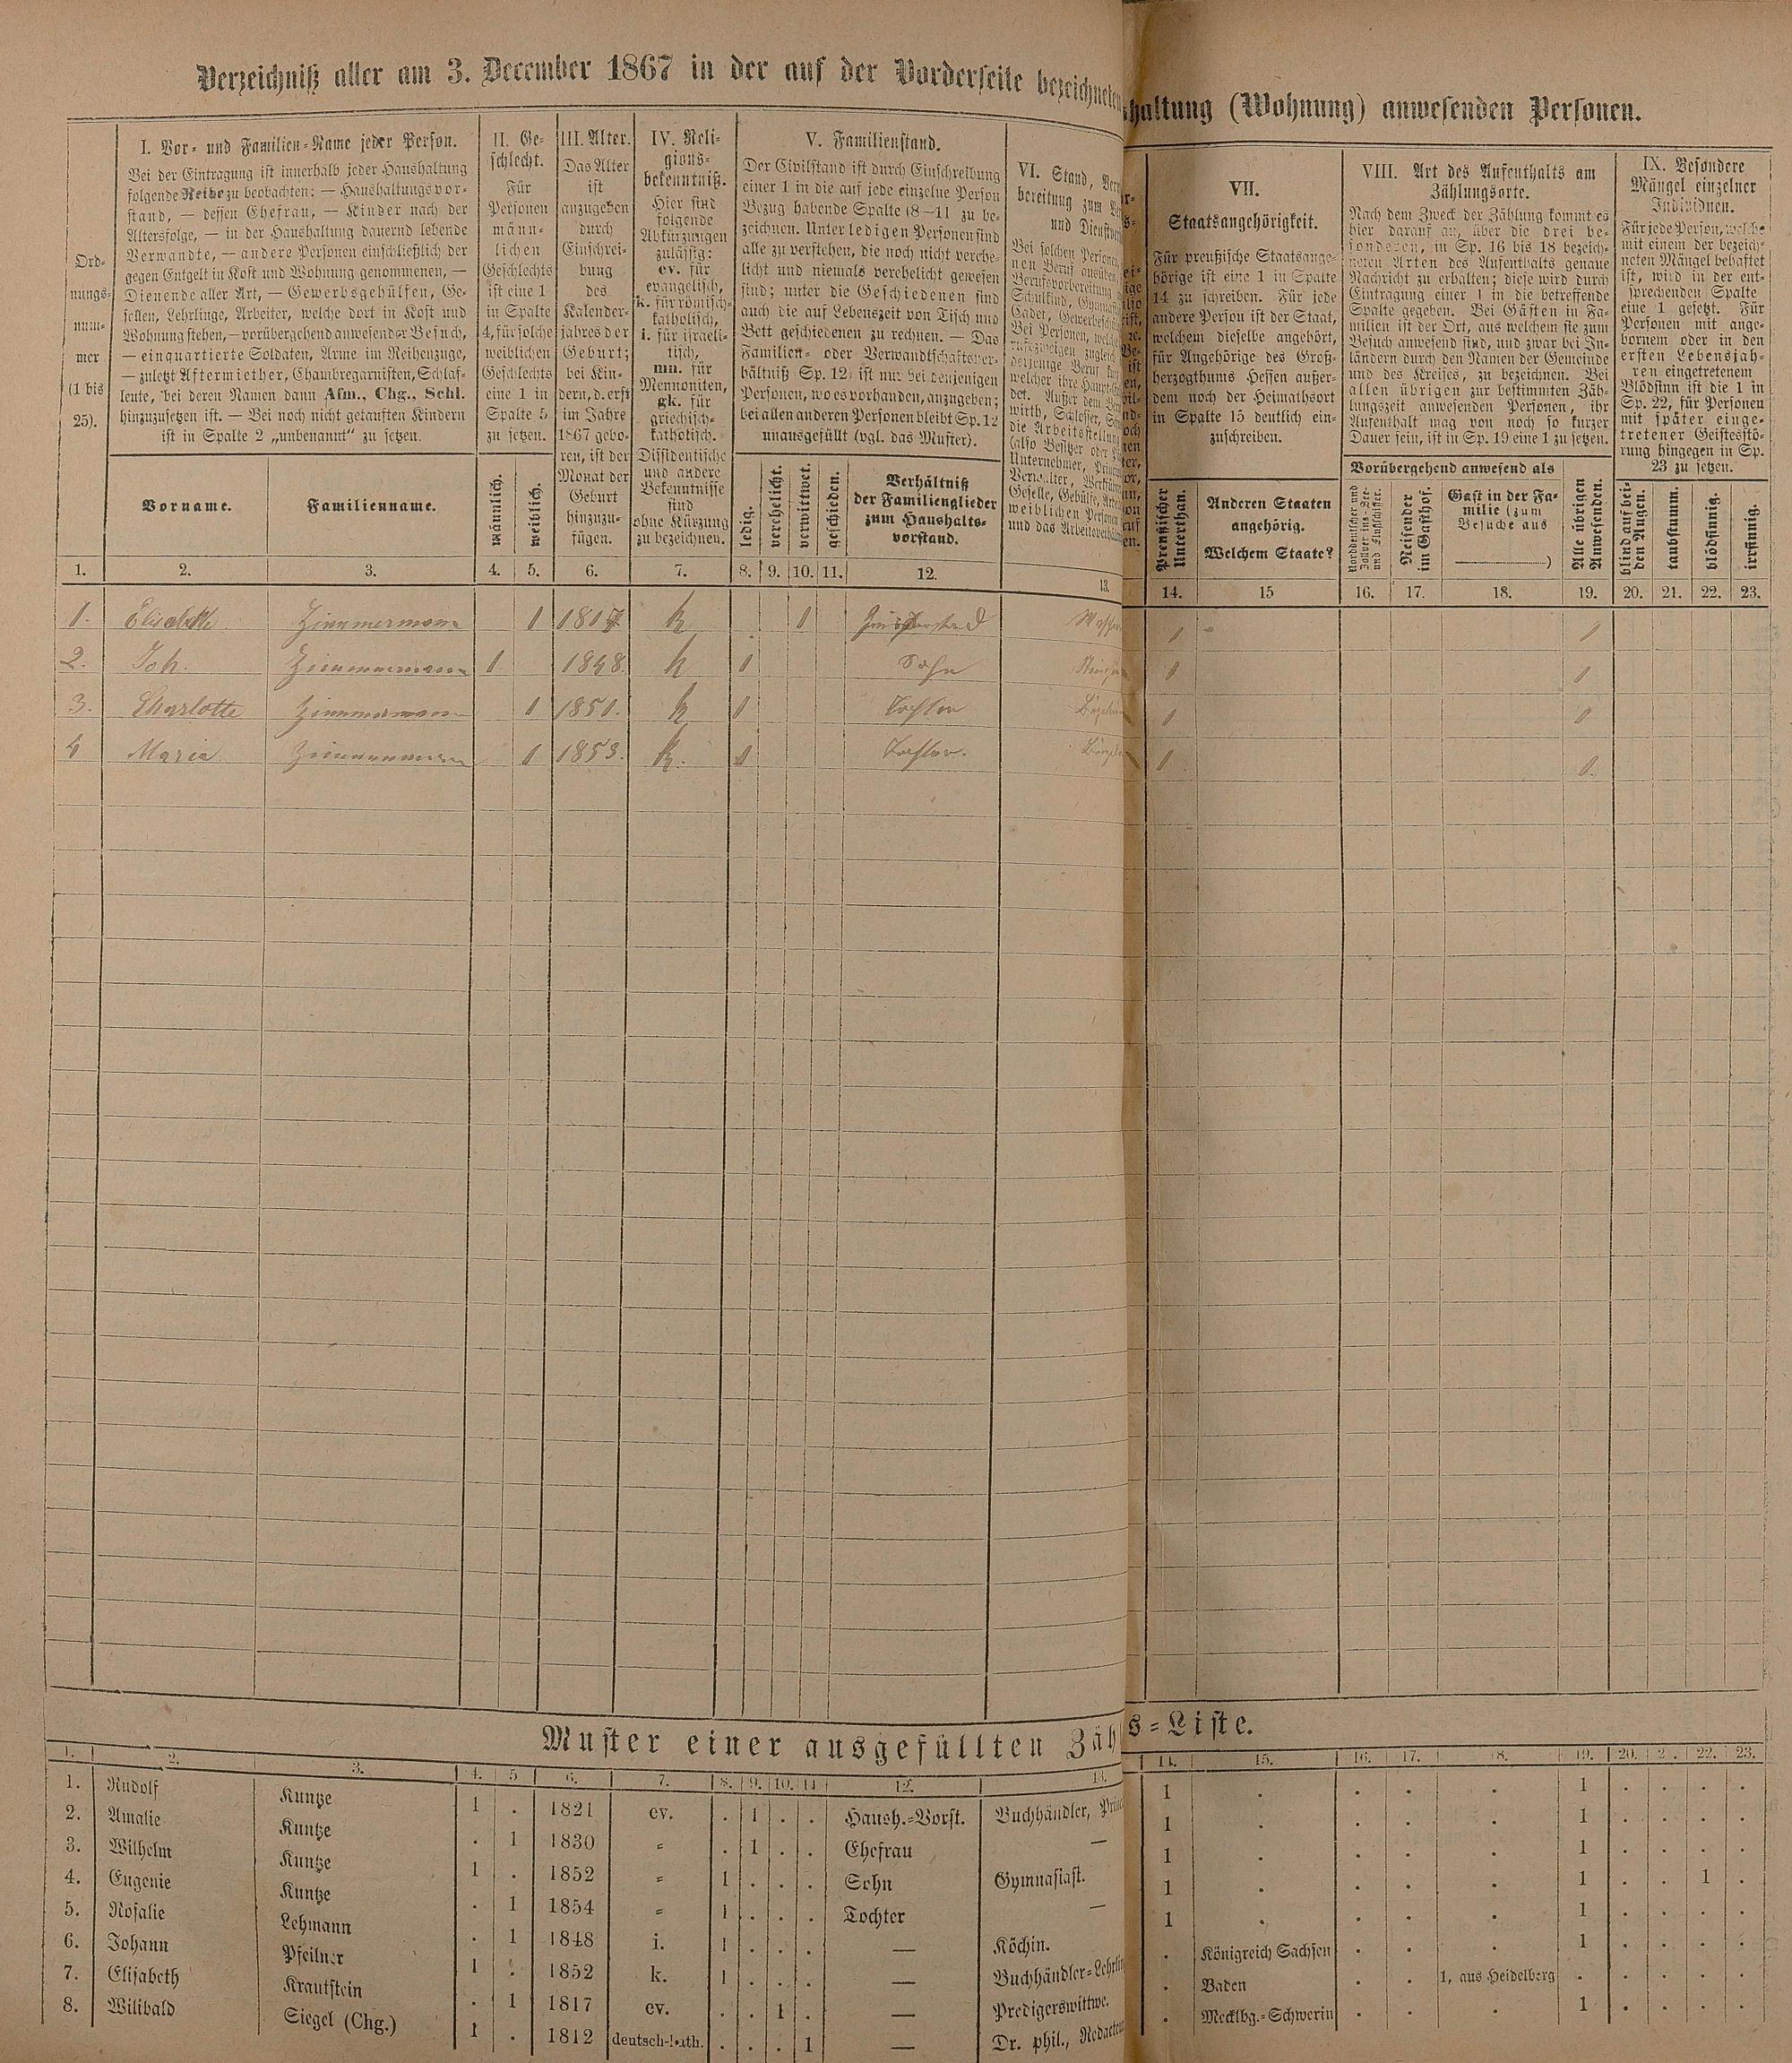 Verzeichniß aller am 3. December 1867 in der auf der Vorderseite bezeichneten
haltung (Wohnung) anwesenden Personen.
Ord-
nungs-
num-
mer
(1 bis
25).
I. Vor- und Familien-Name jeder Person.
Bei der Eintragung ist innerhalb jeder Haushaltung
folgende Reihe zu beobachten: — Haushaltungsvor-
stand, — dessen Ehefrau, — Kinder nach der
Altersfolge, — in der Haushaltung dauernd lebende
Verwandte, — andere Personen einschließlich der
gegen Entgelt in Kost und Wohnung genommenen, —
Dienende aller Art, — Gewerbsgehülfen, Ge-
sellen, Lehrlinge, Arbeiter, welche dort in Kost und
Wohnung stehen, — vorübergehend anwesender Besuch,
— einquartierte Soldaten, Arme im Reihenzuge,
— zuletzt Aftermiether, Chambregarnisten, Schlaf-
leute, bei deren Namen dann Afm., Chg., Schl.
hinzuzusetzen ist. — Bei noch nicht getauften Kindern
ist in Spalte 2 „unbenannt“ zu setzen.
Vorname.
Familienname.
II. Ge-
schlecht.
Für
Personen
männ-
lichen
Geschlechts
ist eine 1
in Spalte
4, für solche
weiblichen
Geschlechts
eine 1 in
Spalte 5
zu setzen.
männlich.
weiblich.
III. Alter.
Das Alter
ist
anzugeben
durch
Einschrei-
bung
des
Kalender-
jahres der
Geburt;
bei Kin-
dern, d. erst
im Jahre
1867 gebo-
ren, ist der
Monat der
Geburt
hinzuzu-
fügen.
IV. Reli-
gions-
bekenntniß.
Hier sind
folgende
Abkürzungen
zulässig:
ev. für
evangelisch,
k. für römisch-
katholisch,
i. für israeli-
tisch,
mn. für
Mennoniten,
gk. für
griechisch-
katholisch.
Dissidentische
und andere
Bekenntnisse
sind
ohne Kürzung
zu bezeichnen.
V. Familienstand.
Der Civilstand ist durch Einschreibung
einer 1 in die auf jede einzelne Person
Bezug habende Spalte (8—11) zu be-
zeichnen. Unter ledigen Personen sind
alle zu verstehen, die noch nicht verehe-
licht und niemals verehelicht gewesen
sind; unter die Geschiedenen sind
auch die auf Lebenszeit von Tisch und
Bett geschiedenen zu rechnen. — Das
Familien- oder Verwandtschaftsver-
hältniß (Sp. 12) ist nur bei denjenigen
Personen, wo es vorhanden, anzugeben;
bei allen anderen Personen bleibt Sp. 12
unausgefüllt (vgl. das Muster).
ledig.
verehelicht.
verwittwet.
geschieden.
Verhältniß
der Familienglieder
zum Haushalts-
vorstand.
VI. Stand,
bereitung zum
und
Bei solchen
VII.
Staatsangehörigkeit.
Für preußische Staatsange-
hörige ist eine 1 in Spalte
14 zu schreiben. Für jede
andere Person ist der Staat,
welchem dieselbe angehört,
für Angehörige des Groß-
herzogthums Hessen außer-
dem noch der Heimathsort
in Spalte 15 deutlich ein-
zuschreiben.
Preußischer
Unterthan.
Anderen Staaten
angehörig.
Welchem Staate?
VIII. Art des Aufenthalts am
Zählungsorte.
Nach dem Zweck der Zählung kommt es
hier darauf an, über die drei be-
sonderen, in Sp. 16 bis 18 bezeich-
neten Arten des Aufenthalts genaue
Nachricht zu erhalten; diese wird durch
Eintragung einer 1 in die betreffende
Spalte gegeben. Bei Gästen in Fa-
milien ist der Ort, aus welchem sie zum
Besuch anwesend sind, und zwar bei In-
ländern durch den Namen der Gemeinde
und des Kreises, zu bezeichnen. Bei
allen übrigen zur bestimmten Zäh-
lungszeit anwesenden Personen, ihr
Aufenthalt mag von noch so kurzer
Dauer sein, ist in Sp. 19 eine 1 zu setzen.
Vorübergehend anwesend als
Norddeutscher und
Zollver.ins-See-
und Flußschiffer.
Reisender
im Gasthof.
Gast in der Fa-
milie (zum
Besuche aus
)
Alle übrigen
Anwesenden.
IX. Besondere
Mängel einzelner
Individuen.
Für jede Person, welche
mit einem der bezeich-
neten Mängel behaftet
ist, wird in der ent-
sprechenden Spalte
eine 1 gesetzt. Für
Personen mit ange-
bornem oder in den
ersten Lebensjah-
ren eingetretenem
Blödsinn ist die 1 in
Sp. 22, für Personen
mit später einge-
tretener Geistesstö-
rung hingegen in Sp.
23 zu setzen.
blind auf bei-
den Augen.
taubstumm.
blödsinnig.
irrsinnig.
1. 2. 3. 4. 5. 6. 7. 8. 9. 10. 11. 12. 13. 14. 15 16. 17. 18. 19. 20. 21. 22. 23.
1. Elisabeth Zimmermann 1 1817 k 1 1 1
2. Joh. Zimmermann 1 1848. k 1 Sohn 1 1
3. Charlotte Zimmermann 1 1850. k 1 Tochter 1 1
4 Maria Zimmermann 1 1853. k. 1 Tochter. 1 1.
Muster einer ausgefüllten Zäh
s-Liste.
1. 2. 3. 4. 5 6. 7. 8. 9. 10. 11 12. 13. 14. 15. 16. 17. 18. 19. 20. 21. 22. 23.
1. Rudolf Kuntze 1 . 1821 ev. . 1 . . Haush.-Vorst. Buchhändler, 1 . . . . 1 . . . .
2. Amalie Kuntze . 1 1830 „ . 1 . . Ehefrau — 1 . . . . 1 . . . .
3. Wilhelm Kuntze 1 . 1852 „ 1 . . . Sohn Gymnasiast. 1 . . . . 1 . . . .
4. Eugenie Kuntze . 1 1854 „ 1 . . . Tochter — 1 . . . . 1 . . 1 .
5. Rosalie Lehmann . 1 1848 i. 1 . . . — Köchin. 1 . . . . 1 . . . .
6. Johann Pfeilner 1 . 1852 k. 1 . . . — Buchhändler-Lehrlin . Königreich Sachsen . . . 1 . . . .
7. Elisabeth Krautstein . 1 1817 ev. . . 1 . — Predigerswittwe. . Baden . . 1, aus Heidelberg . . . . .
8. Wilibald Siegel (Chg.) 1 . 1812 deutsch-kath. . . . 1 — Dr. phil., Redacteur . Mecklbg.-Schwerin . . . 1 . . . .